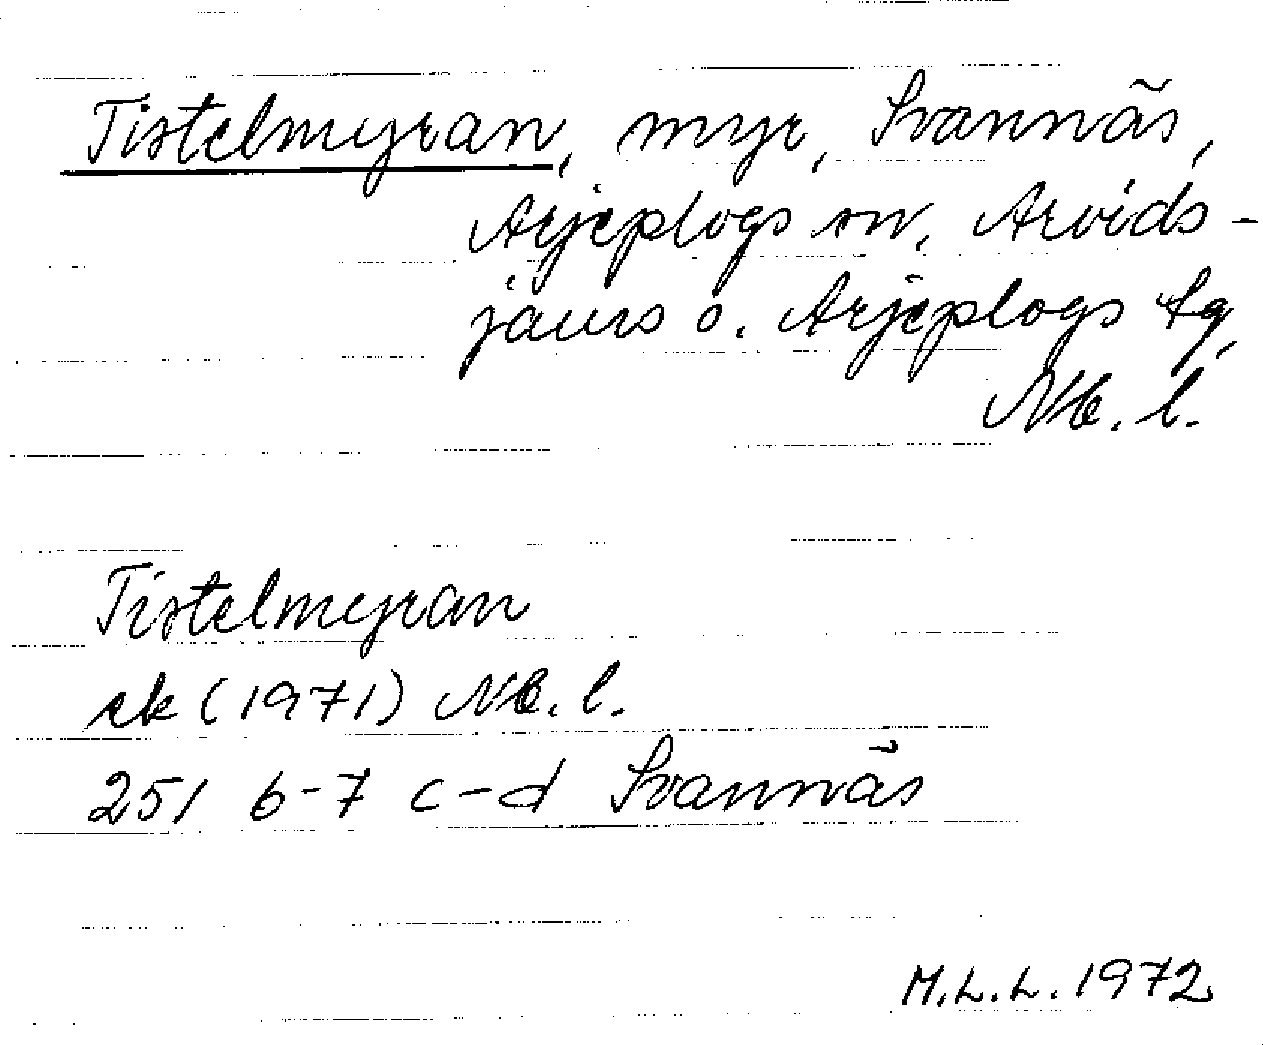 Tistelmyran, myr, Svannäs,
Arjeplogs sn, Arvids-
jaurs o. Arjeplogs tg,
Nb. l.
Tistelmyran
ek (1971) Nb. l.
251 6-7 c-d Svannäs
M.L.L. 1972